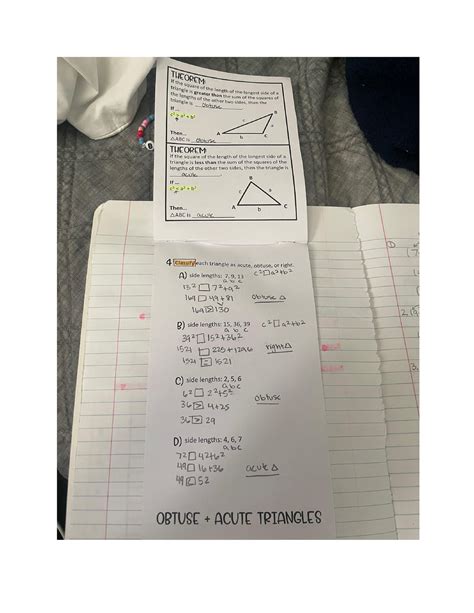 THEOREM:
If the square of the length of the longest side of a
triangle is greater than the sum of the squares of
the lengths of the other two sides, then the
triangle is obtuse
If ...
c² > a² + b²
Then...
△ABC is obtuse
A
B
C
c
a
b
THEOREM:
If the square of the length of the longest side of a
triangle is less than the sum of the squares of the
lengths of the other two sides, then the triangle is
acute
If ...
c² < a² + b²
Then...
△ABC is acute
B
c
a
A
b
C
4 Classify each triangle as acute, obtuse, or right.
A) side lengths: 7, 9, 13 c² □ a²+b²
a b c
13² □ 7²+9²
169 □ 49+81 obtuse △
169 > 130
B) side lengths: 15, 36, 39 c² □ a²+b²
a b c
39² □ 15²+36²
1521 □ 225+1296 right △
1521 = 1521
C) side lengths: 2, 5, 6
a b c
6² □ 2²+5² obtuse
36 > 4+25
36 > 29
D) side lengths: 4, 6, 7
a b c
7² □ 4²+6²
49 □ 16+36 acute △
49 < 52
OBTUSE + ACUTE TRIANGLES